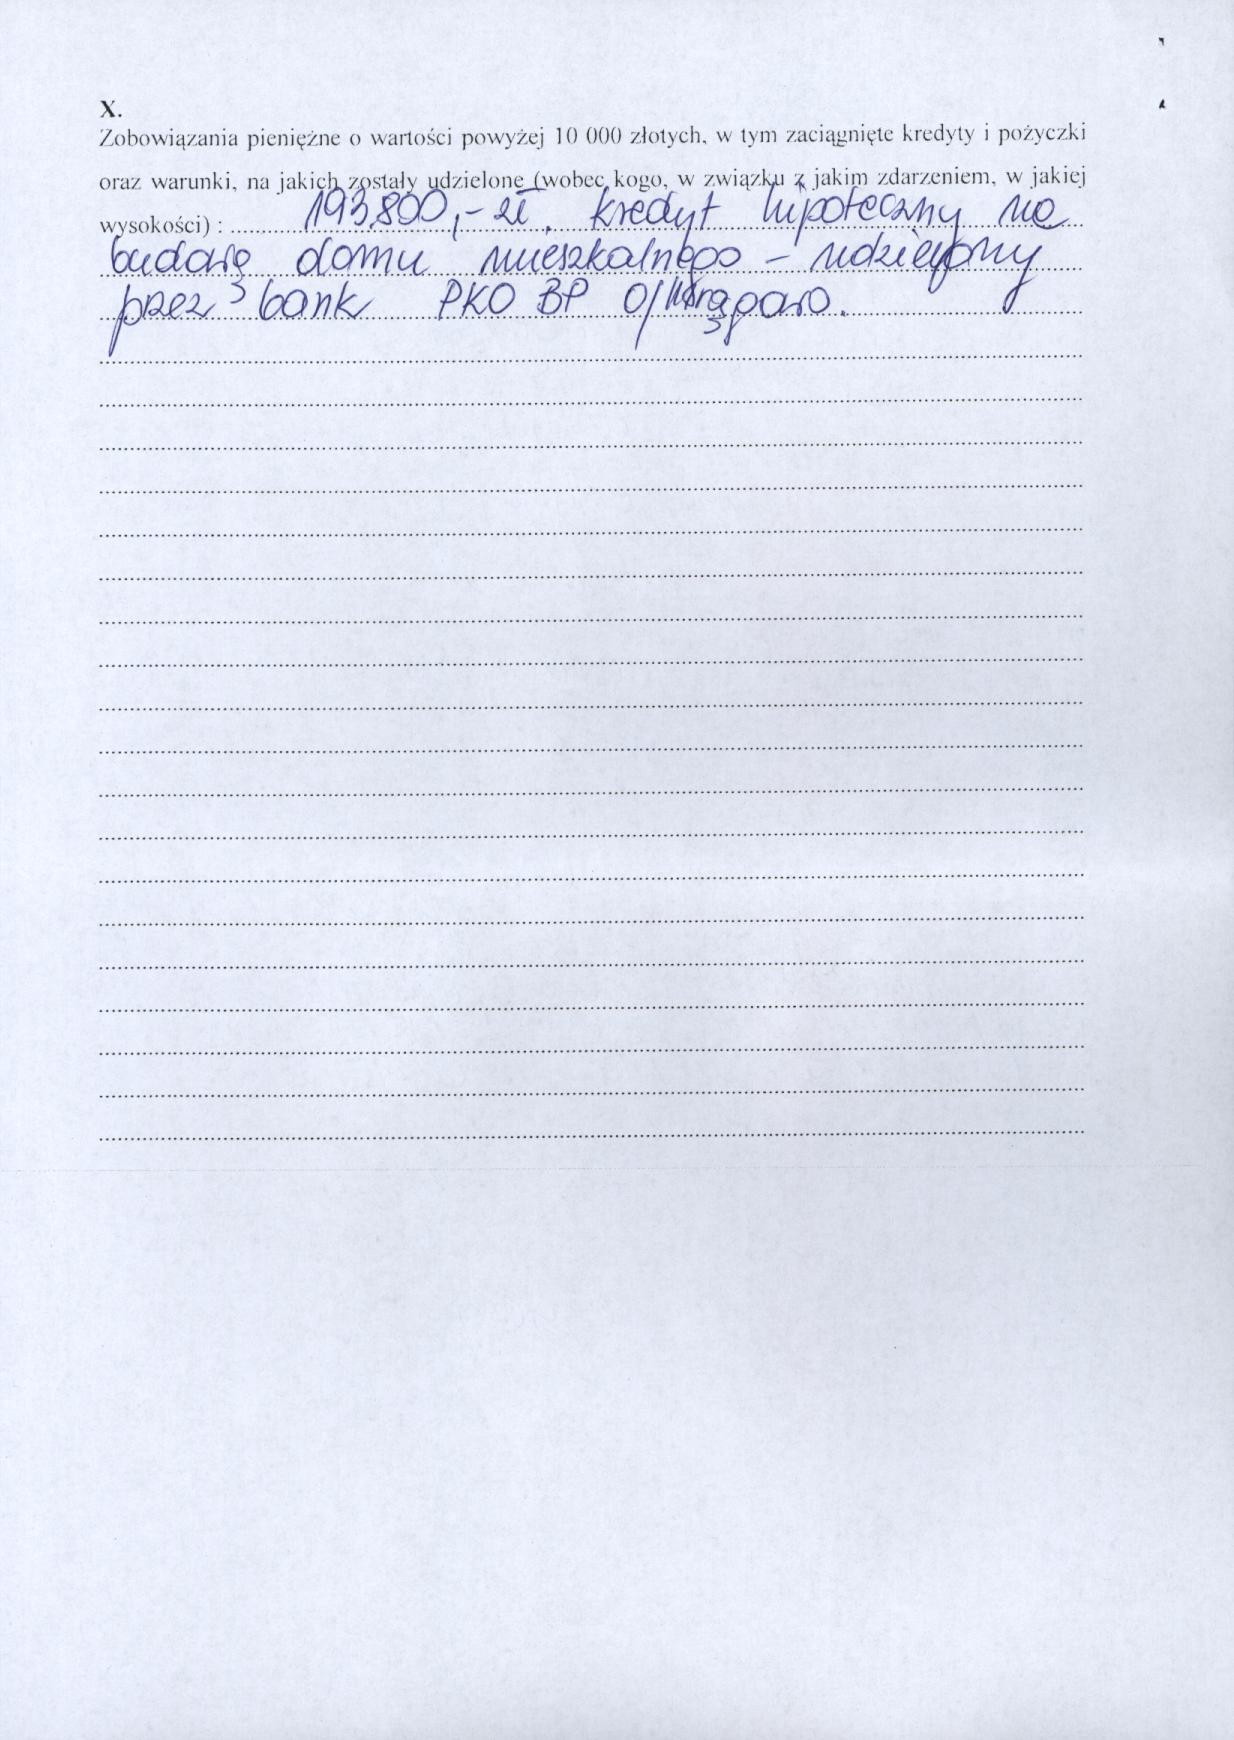 X.
Zobowiązania pieniężne o wartości powyżej 10 000 złotych, w tym zaciągnięte kredyty i pożyczki
oraz warunki, na jakich zostały udzielone (wobec kogo, w związku z jakim zdarzeniem, w jakiej
wysokości) : 193.800,- zł, kredyt hipoteczny na
budowę domu mieszkalnego - udzielony
przez bank PKO BP